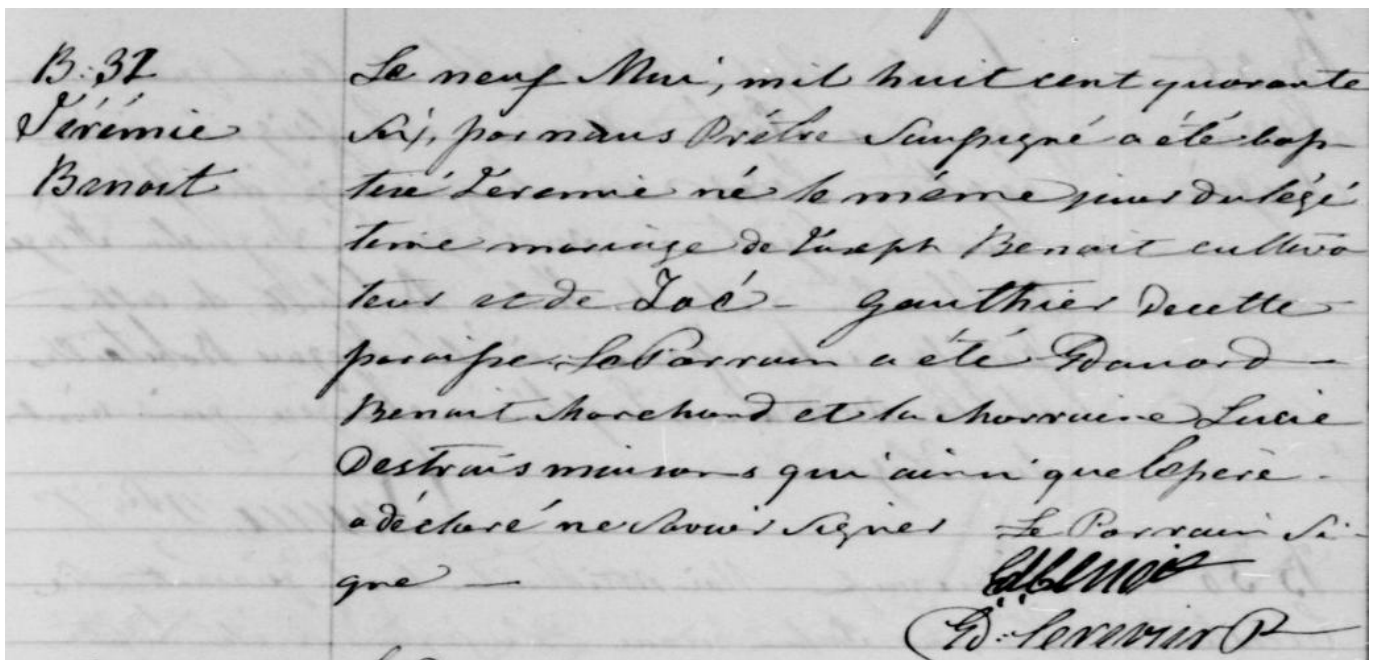 B: 37
Jérémie
Benoit
Le neuf Mai, mil huit cent quarante
Six, par nous Prêtre Soussigné a été bap-
tisé Jéremie né le même jour du légi
time mariage de Joseph Benoit cultiva
teur et de Zoé - Gauthier de cette
paroisse. Le Parrain a été Edouard -
Benoit Marchand et la Marraine Lucie
Destroismaisons qui ainsi que le père -
a déclaré ne savoir signer Le Parrain Si-
gné -
Ed Benoit
Ed: